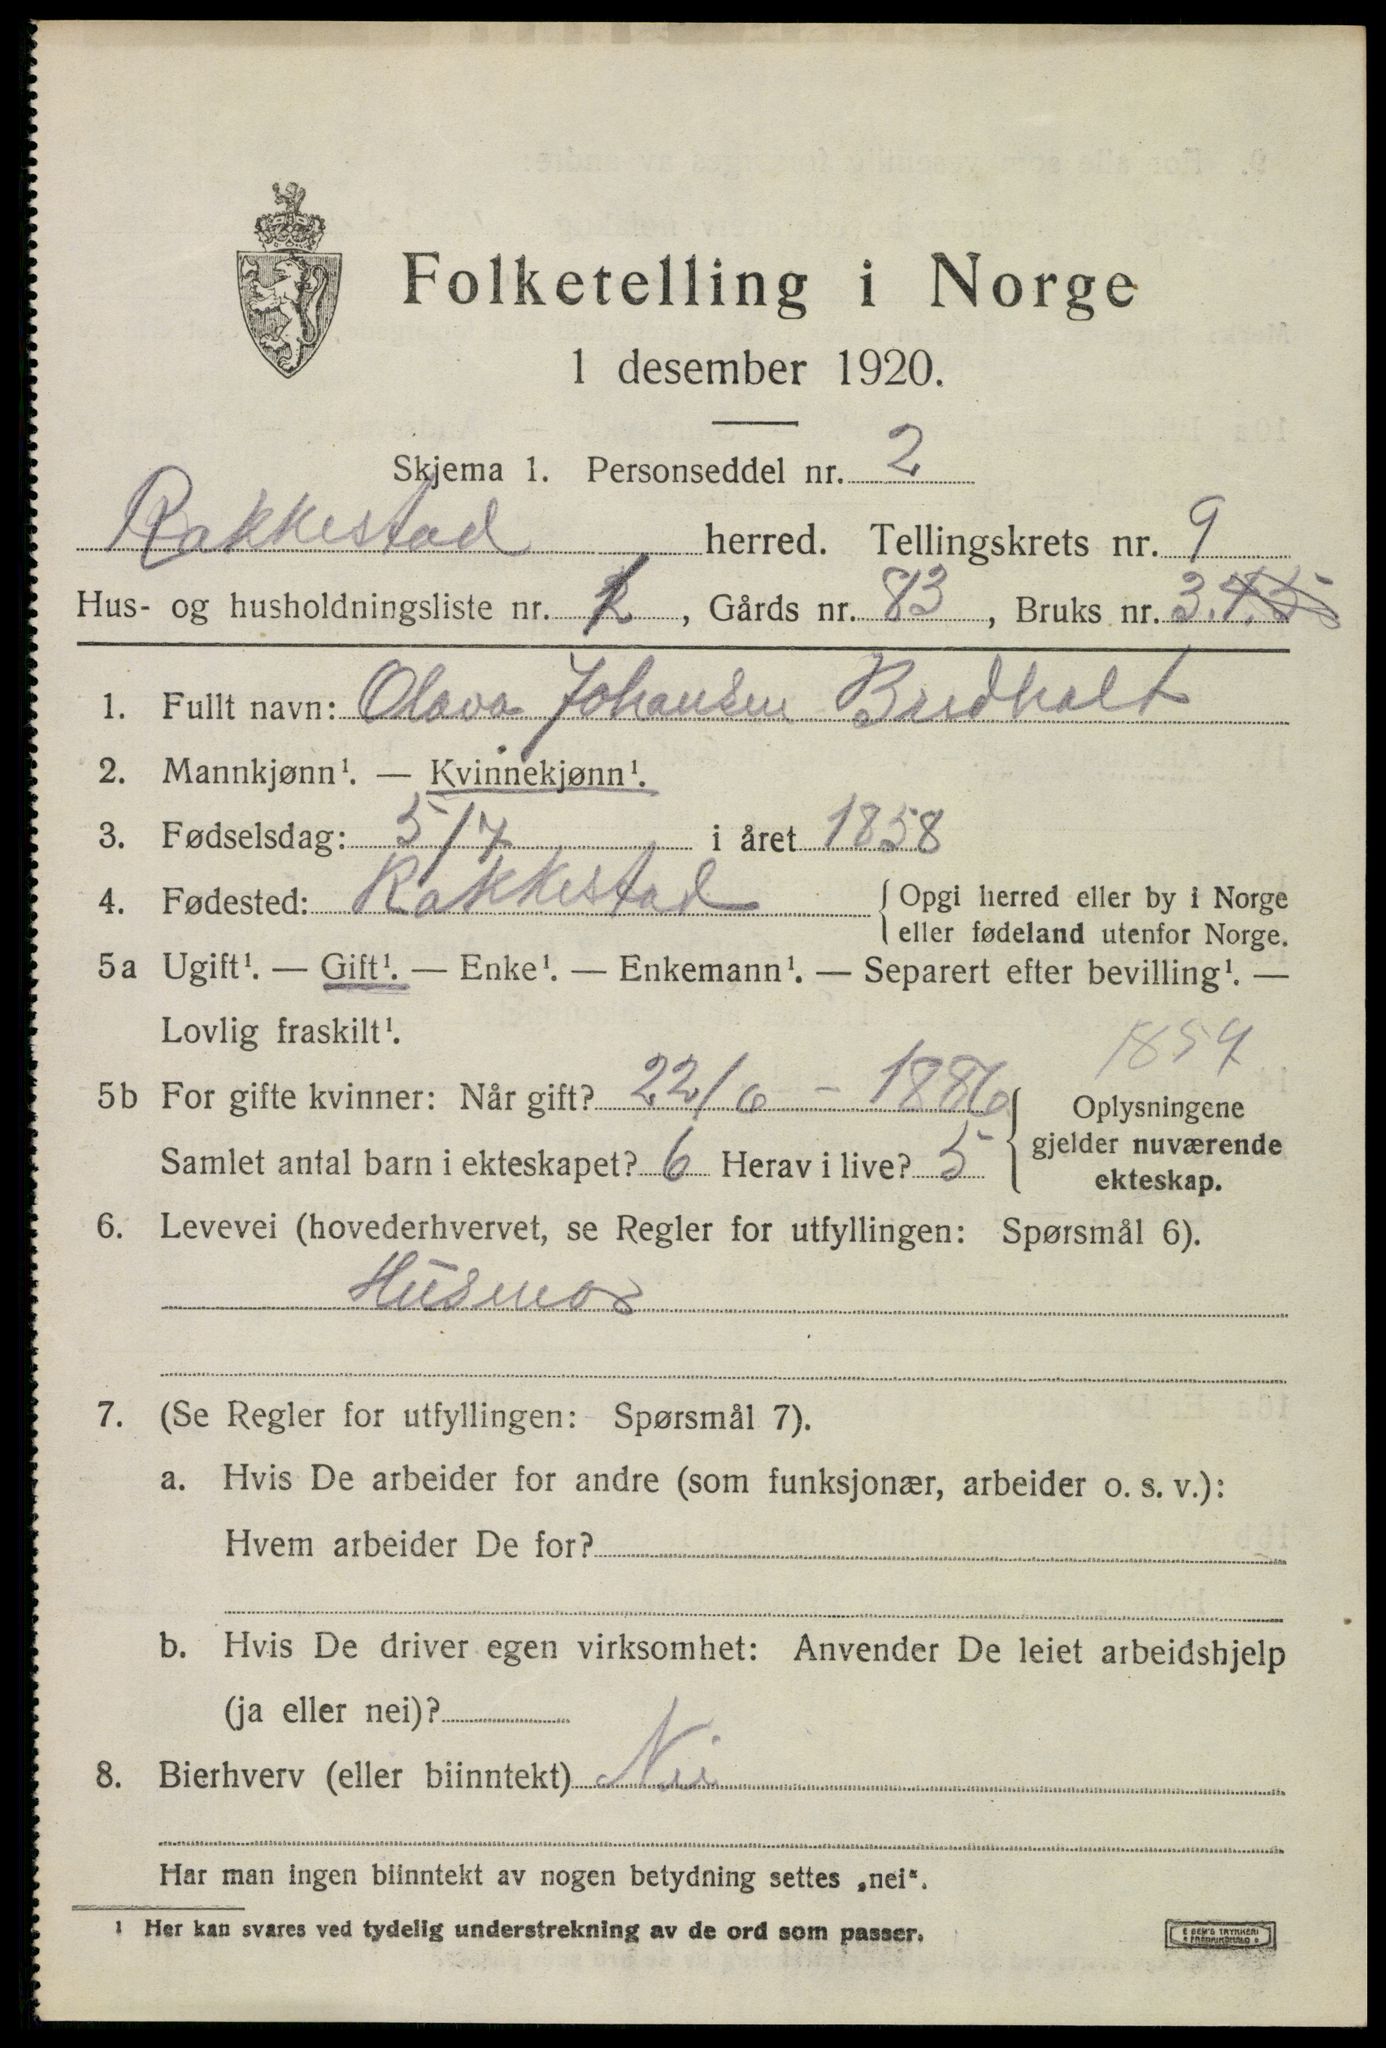 Folketelling i Norge
1 desember 1920.
Skjema 1. Personseddel nr. 2
Rakkestad herred. Tellingskrets nr. 9
Hus- og husholdningsliste nr. 2, Gårds nr. 83, Bruks nr. 3.4.5
1. Fullt navn: Olava Johansen Budholt
2. Mannkjønn¹. — Kvinnekjønn¹.
3. Fødselsdag: 5/7 i året 1858
4. Fødested: Rakkestad { Opgi herred eller by i Norge
eller fødeland utenfor Norge.
5a Ugift¹. — Gift¹. — Enke¹. — Enkemann¹. — Separert efter bevilling¹. —
Lovlig fraskilt¹.
1859
5b For gifte kvinner: Når gift? 22/6 – 1886
Samlet antal barn i ekteskapet? 6 Herav i live? 5
{ Oplysningene
gjelder nuværende
ekteskap.
6. Levevei (hovederhvervet, se Regler for utfyllingen: Spørsmål 6).
Husmor
7. (Se Regler for utfyllingen: Spørsmål 7).
a. Hvis De arbeider for andre (som funksjonær, arbeider o. s. v.):
Hvem arbeider De for?
b. Hvis De driver egen virksomhet: Anvender De leiet arbeidshjelp
(ja eller nei)?
8. Bierhverv (eller biinntekt) Nei
Har man ingen biinntekt av nogen betydning settes „nei".
¹ Her kan svares ved tydelig understrekning av de ord som passer.
E SEM'S TRYKKERI
FREDRIKSHALD